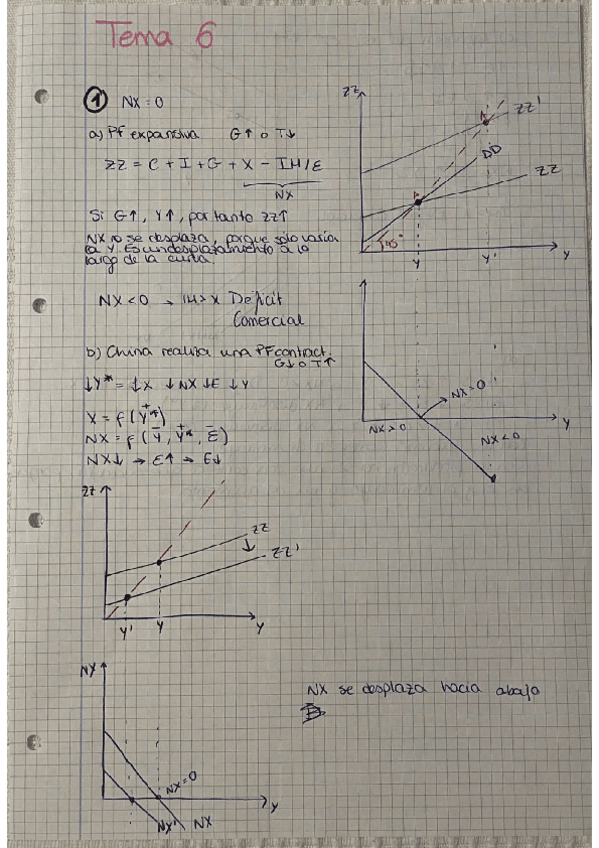 Tema 6
① NX = 0
a) PF expansiva G↑ o T↓
ZZ = C + I + G + X - IM/E
NX
Si G↑, Y↑, por tanto ZZ↑
NX no se desplaza, porque sólo varía
la Y. Es un desplazamiento a lo
largo de la curva.
NX < 0 → IM > X Déficit
Comercial
b) China realiza una PF contract.
G↓ o T↑
↓Y* = ↓X ↓NX ↓E ↓Y
X = f(Y*) +
NX = f(Y, Y*, E) - + -
NX↓ → E↑ → E↓
ZZ
ZZ'
DD
ZZ
45°
Y
Y'
Y
NX = 0
NX > 0
NX < 0
Y
ZZ
ZZ
ZZ'
Y'
Y
Y
NX
NX = 0
NX'
NX
Y
NX se desplaza hacia abajo